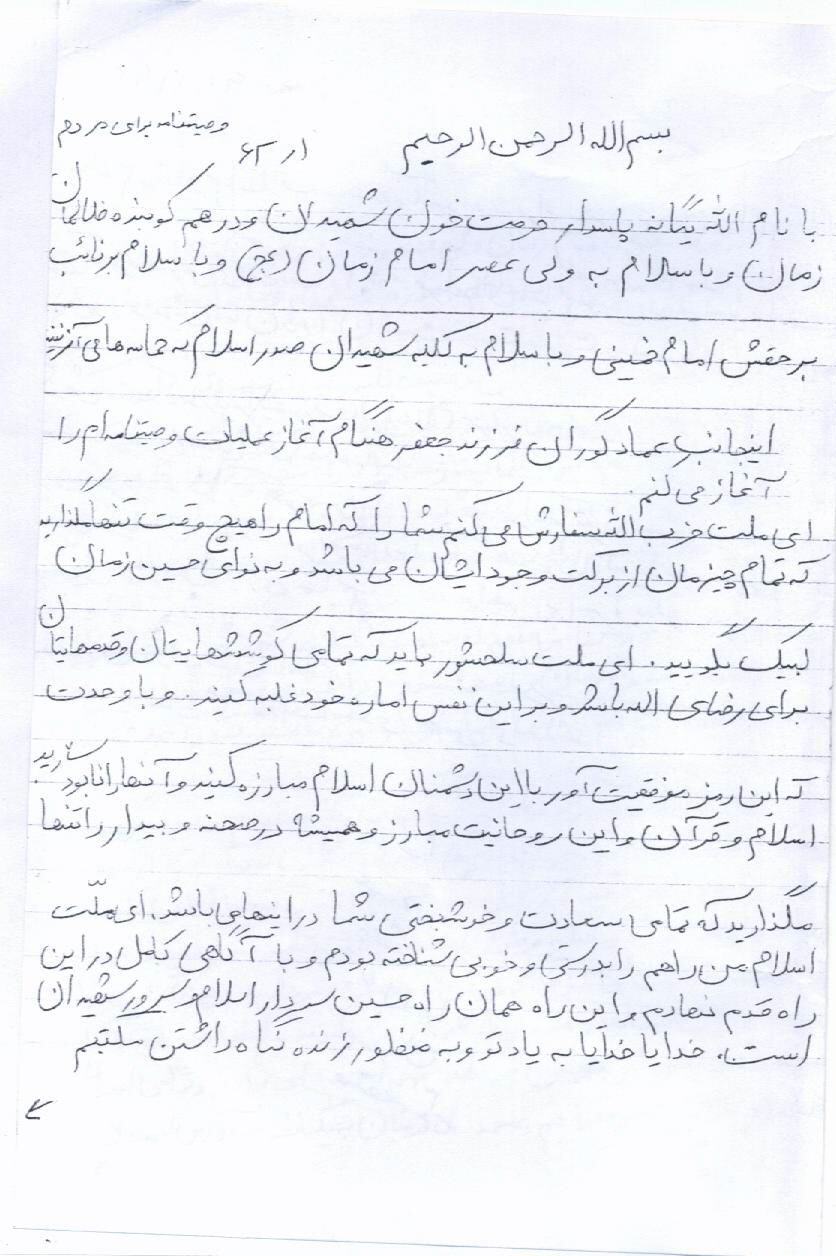 وصیتنامه برای مردم
بسم الله الرحمن الرحیم
با نام الله یگانه پاسدار حرمت خون شهیدان و درهم کوبنده ظالمان
زمان و با سلام به ولی عصر امام زمان (عج) و با سلام بر نائب
بر حقش امام خمینی و با سلام به کلیه شهیدان صدر اسلام که حماسه ها می آفرینند
اینجانب عماد گوران فرزند جعفر هنگام آغاز عملیات وصیتنامه ام را
آغاز می کنم.
ای ملت حزب الله سفارش می کنم شما را که امام را هیچ وقت تنها مگذارید
که تمام چیزمان از برکت وجود ایشان می باشد و به نوای حسین زمان
لبیک بگویید. ای ملت سلحشور باید که تمامی کوششهایتان و قدمهایتان
برای رضای الله باشد و بر این نفس اماره خود غلبه کنید. و با وحدت
که این رمز موفقیت آور با این دشمنان اسلام مبارزه کنید و آنها را نابود سازید
اسلام و قرآن و این روحانیت مبارز و همیشه در صحنه و بیدار را تنها
مگذارید که تمامی سعادت و خوشبختی شما در اینها می باشد. ای ملّت
اسلام من راهم را بدرستی و خوبی شناخته بودم و با آگاهی کامل در این
راه قدم نهادم و این راه همان راه حسین سردار اسلام و سرور شهیدان
است. خدایا خدایا به یاد تو و به منظور زنده نگاه داشتن مکتبم